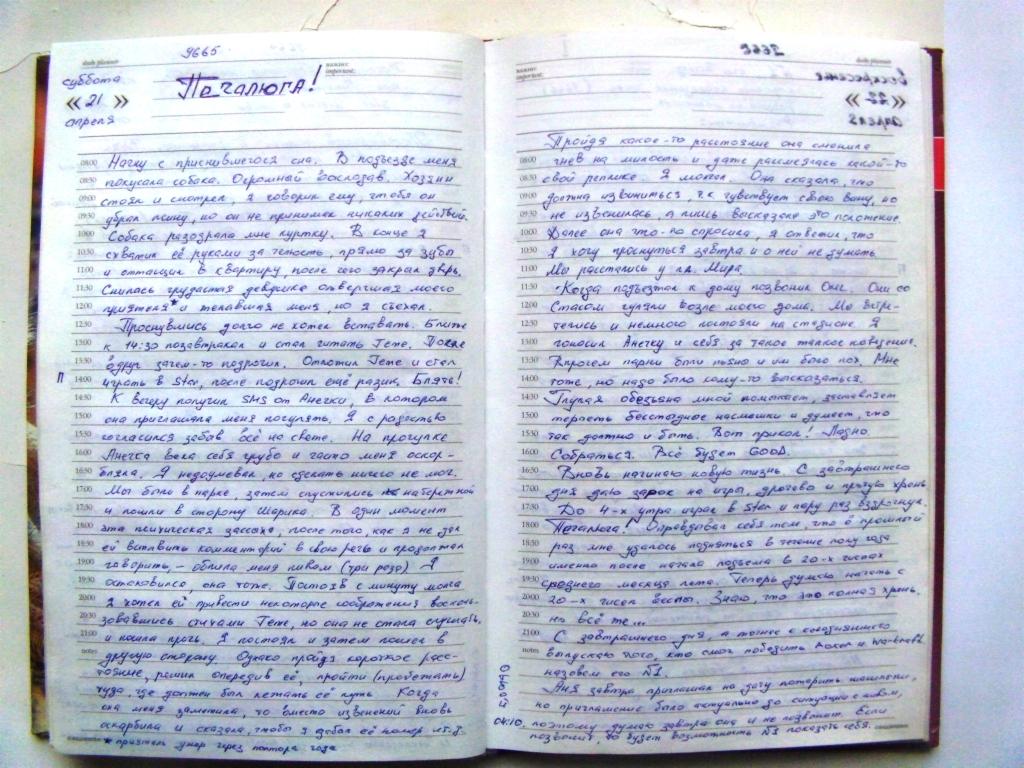 9665
суббота
« 21 »
апреля
Печалюга!
daily planner
важное
important:
08:00 Начну с приснившегося сна. В подъезде меня
08:30 покусала собака. Огромный волкодав. Хозяин
09:00 стоял и смотрел, я говорил ему, чтобы он
09:30 убрал псину, но он не принимал никаких действий.
10:00 Собака разодрала мне куртку. В конце я
10:30 схватил её руками за челюсть, прямо за зубы
11:00 и оттащил в квартиру, после чего закрыл дверь.
11:30 Снилась грудастая девушка отвергшая моего
12:00 приятеля* и желавшая меня, но я съехал.
12:30 Проснувшись долго не хотел вставать. Ближе
13:00 к 14:30 позавтракал и стал читать Гете. После
13:30 вдруг зачем-то подрочил. Отложил Гете и стал
п 14:00 играть в Star, после подрочил ещё разик. Блять!
14:30 К вечеру получил SMS от Анечки, в котором
15:00 она приглашала меня погулять. Я с радостью
15:30 согласился забыв всё на свете. На прогулке
16:00 Анечка вела себя грубо и часто меня оскор-
16:30 бляла. Я недоумевал, но сделать ничего не мог.
17:00 Мы были в парке, затем спустились к набережной
17:30 и пошли в сторону Шарика. В один момент
18:00 эта психическая зассыха, после того, как я не дал
18:30 ей вставить комментарий в свою речь и продолжал
19:00 говорить, – облила меня пивом (три раза). Я
19:30 остановился она тоже. Постояв с минуту молча
20:00 я хотел ей привести некоторые соображения восполь-
20:30 зовавшись стихами Гете, но она не стала слушать,
21:00 и пошла прочь. Я постоял и затем пошел в
notes другую сторону. Однако пройдя короткое расс-
тояние, решил опередив её, пройти (пробежать)
туда, где должен был лежать её путь. Когда
она меня заметила, то вместо извинений вновь
оскорбила и сказала, чтобы я забыл её номер
* приятель умер через полтора года
важное
important:
daily planner
воскресенье
« 22 »
апреля
Пройдя какое-то расстояние она сменила
08:00 гнев на милость и даже рассмеялась какой-то
08:30 своей реплике. Я молчал. Она сказала, что
09:00 должна извиниться, т.к. чувствует свою вину, но
09:30 не извинилась, а лишь высказала это положение.
10:00 Далее она что-то спросила, я ответил, что
10:30 я хочу проснуться завтра и о ней не думать.
11:00 Мы расстались у пл. Мира.
11:30 Когда подъезжал к дому позвонил Олег. Они со
12:00 Стасом гуляли возле моего дома. Мы встре-
12:30 тились и немного постояли на стадионе. Я
13:00 поносил Анечку и себя за такое жалкое поведение.
13:30 Впрочем парни были пьяно и им было пох. Мне
14:00 тоже, но надо было кому-то высказаться.
14:30 Глупая обезьяна мной помыкает, заставляет
15:00 терпеть бесстыдное насмешки и думает, что
15:30 так должно и быть. Вот прикол! Ладно.
16:00 Собраться. Всё будет GOOD.
16:30 Вновь начинаю новую жизнь. С завтрашнего
17:00 дня даю зарок на игры, дрочево и прочую хрень.
17:30 До 4-х утра играл в Star и пару раз вздрочнул.
18:00 Печалюга! Оправдывал себя тем, что в прошлый
18:30 раз мне удалось подняться в течение полу года
19:00 именно после начала подъема в 20-х числах
19:30 среднего месяца лета. Теперь думаю начать с
20:00 20-х чисел весны. Знаю, что это полная хрень,
20:30 но всё же...
21:00 С завтрашнего дня, а точнее с сегодняшнего
notes выпускаю того, кто смог победить
назовем его №1.
Аня завтра приглашала на дачу пожарить шашлыки,
но приглашение было актуально до ситуации с пивом,
04:10. поэтому думаю завтра она и не позвонит. Если
позвонит, то будет возможность №1 показать себя.